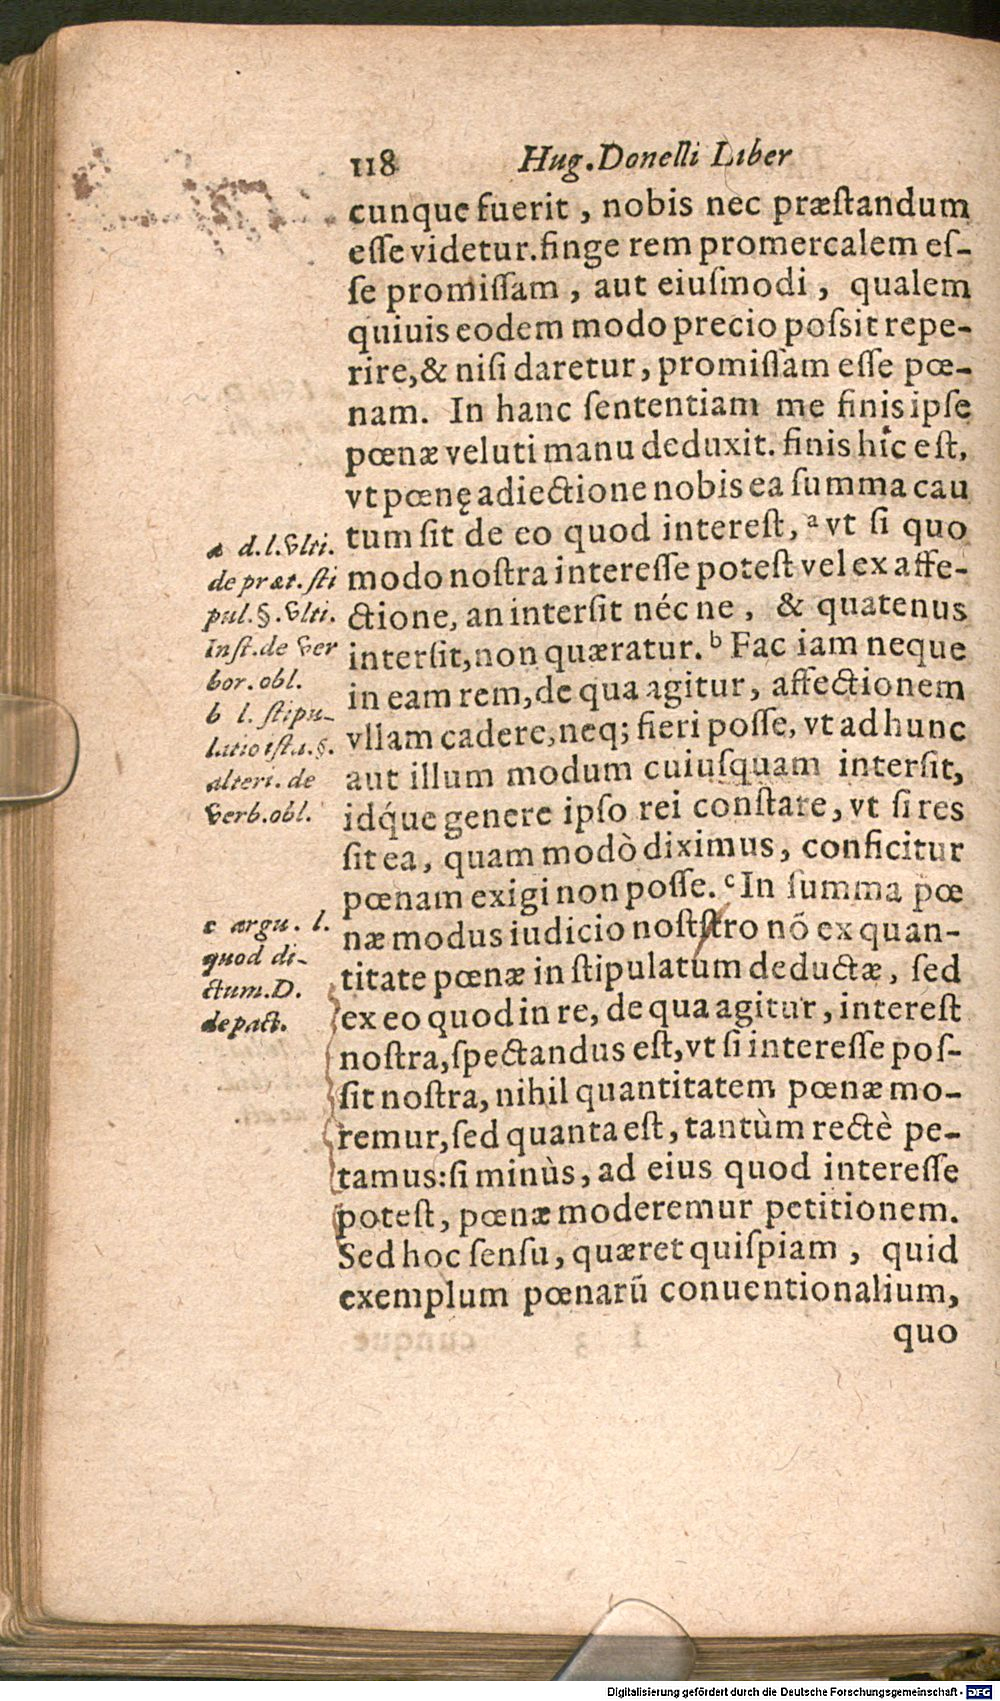 118 Hug. Donelli Liber
cunque fuerit, nobis nec præſtandum
eſſe videtur. finge rem promercalem eſ-
ſe promiſſam, aut eiuſmodi, qualem
quiuis eodem modo precio poſsit repe-
rire, & niſi daretur, promiſſam eſſe pœ-
nam. In hanc ſententiam me finis ipſe
pœnæ veluti manu deduxit. finis hîc eſt,
vt pœnę adiectione nobis ea ſumma cau
tum ſit de eo quod intereſt, ᵃ vt ſi quo
modo noſtra intereſſe poteſt vel ex affe-
ctione, an interſit nécne, & quatenus
interſit, non quæratur. ᵇ Fac iam neque
in eam rem, de qua agitur, affectionem
vllam cadere, neq; fieri poſſe, vt ad hunc
aut illum modum cuiuſquam interſit,
idq́ue genere ipſo rei conſtare, vt ſi res
ſit ea, quam modò diximus, conficitur
pœnam exigi non poſſe. ᶜ In ſumma pœ
næ modus iudicio noſtſtro nõ ex quan-
titate pœnæ in ſtipulatum deductæ, ſed
ex eo quod in re, de qua agitur, intereſt
noſtra, ſpectandus eſt, vt ſi intereſſe poſ-
ſit noſtra, nihil quantitatem pœnæ mo-
remur, ſed quanta eſt, tantùm rectè pe-
tamus: ſi minùs, ad eius quod intereſſe
poteſt, pœnæ moderemur petitionem.
Sed hoc ſenſu, quæret quiſpiam, quid
exemplum pœnarũ conuentionalium,
quo
a d. l. vlti.
de præt. ſti
pul. §. vlti.
Inſt. de ver
bor. obl.
b l. ſtipu-
latio iſta. §.
alteri. de
verb. obl.
c argu. l.
quod di-
ctum. D.
de pact.
Digitalisierung gefördert durch die Deutsche Forschungsgemeinschaft - DFG